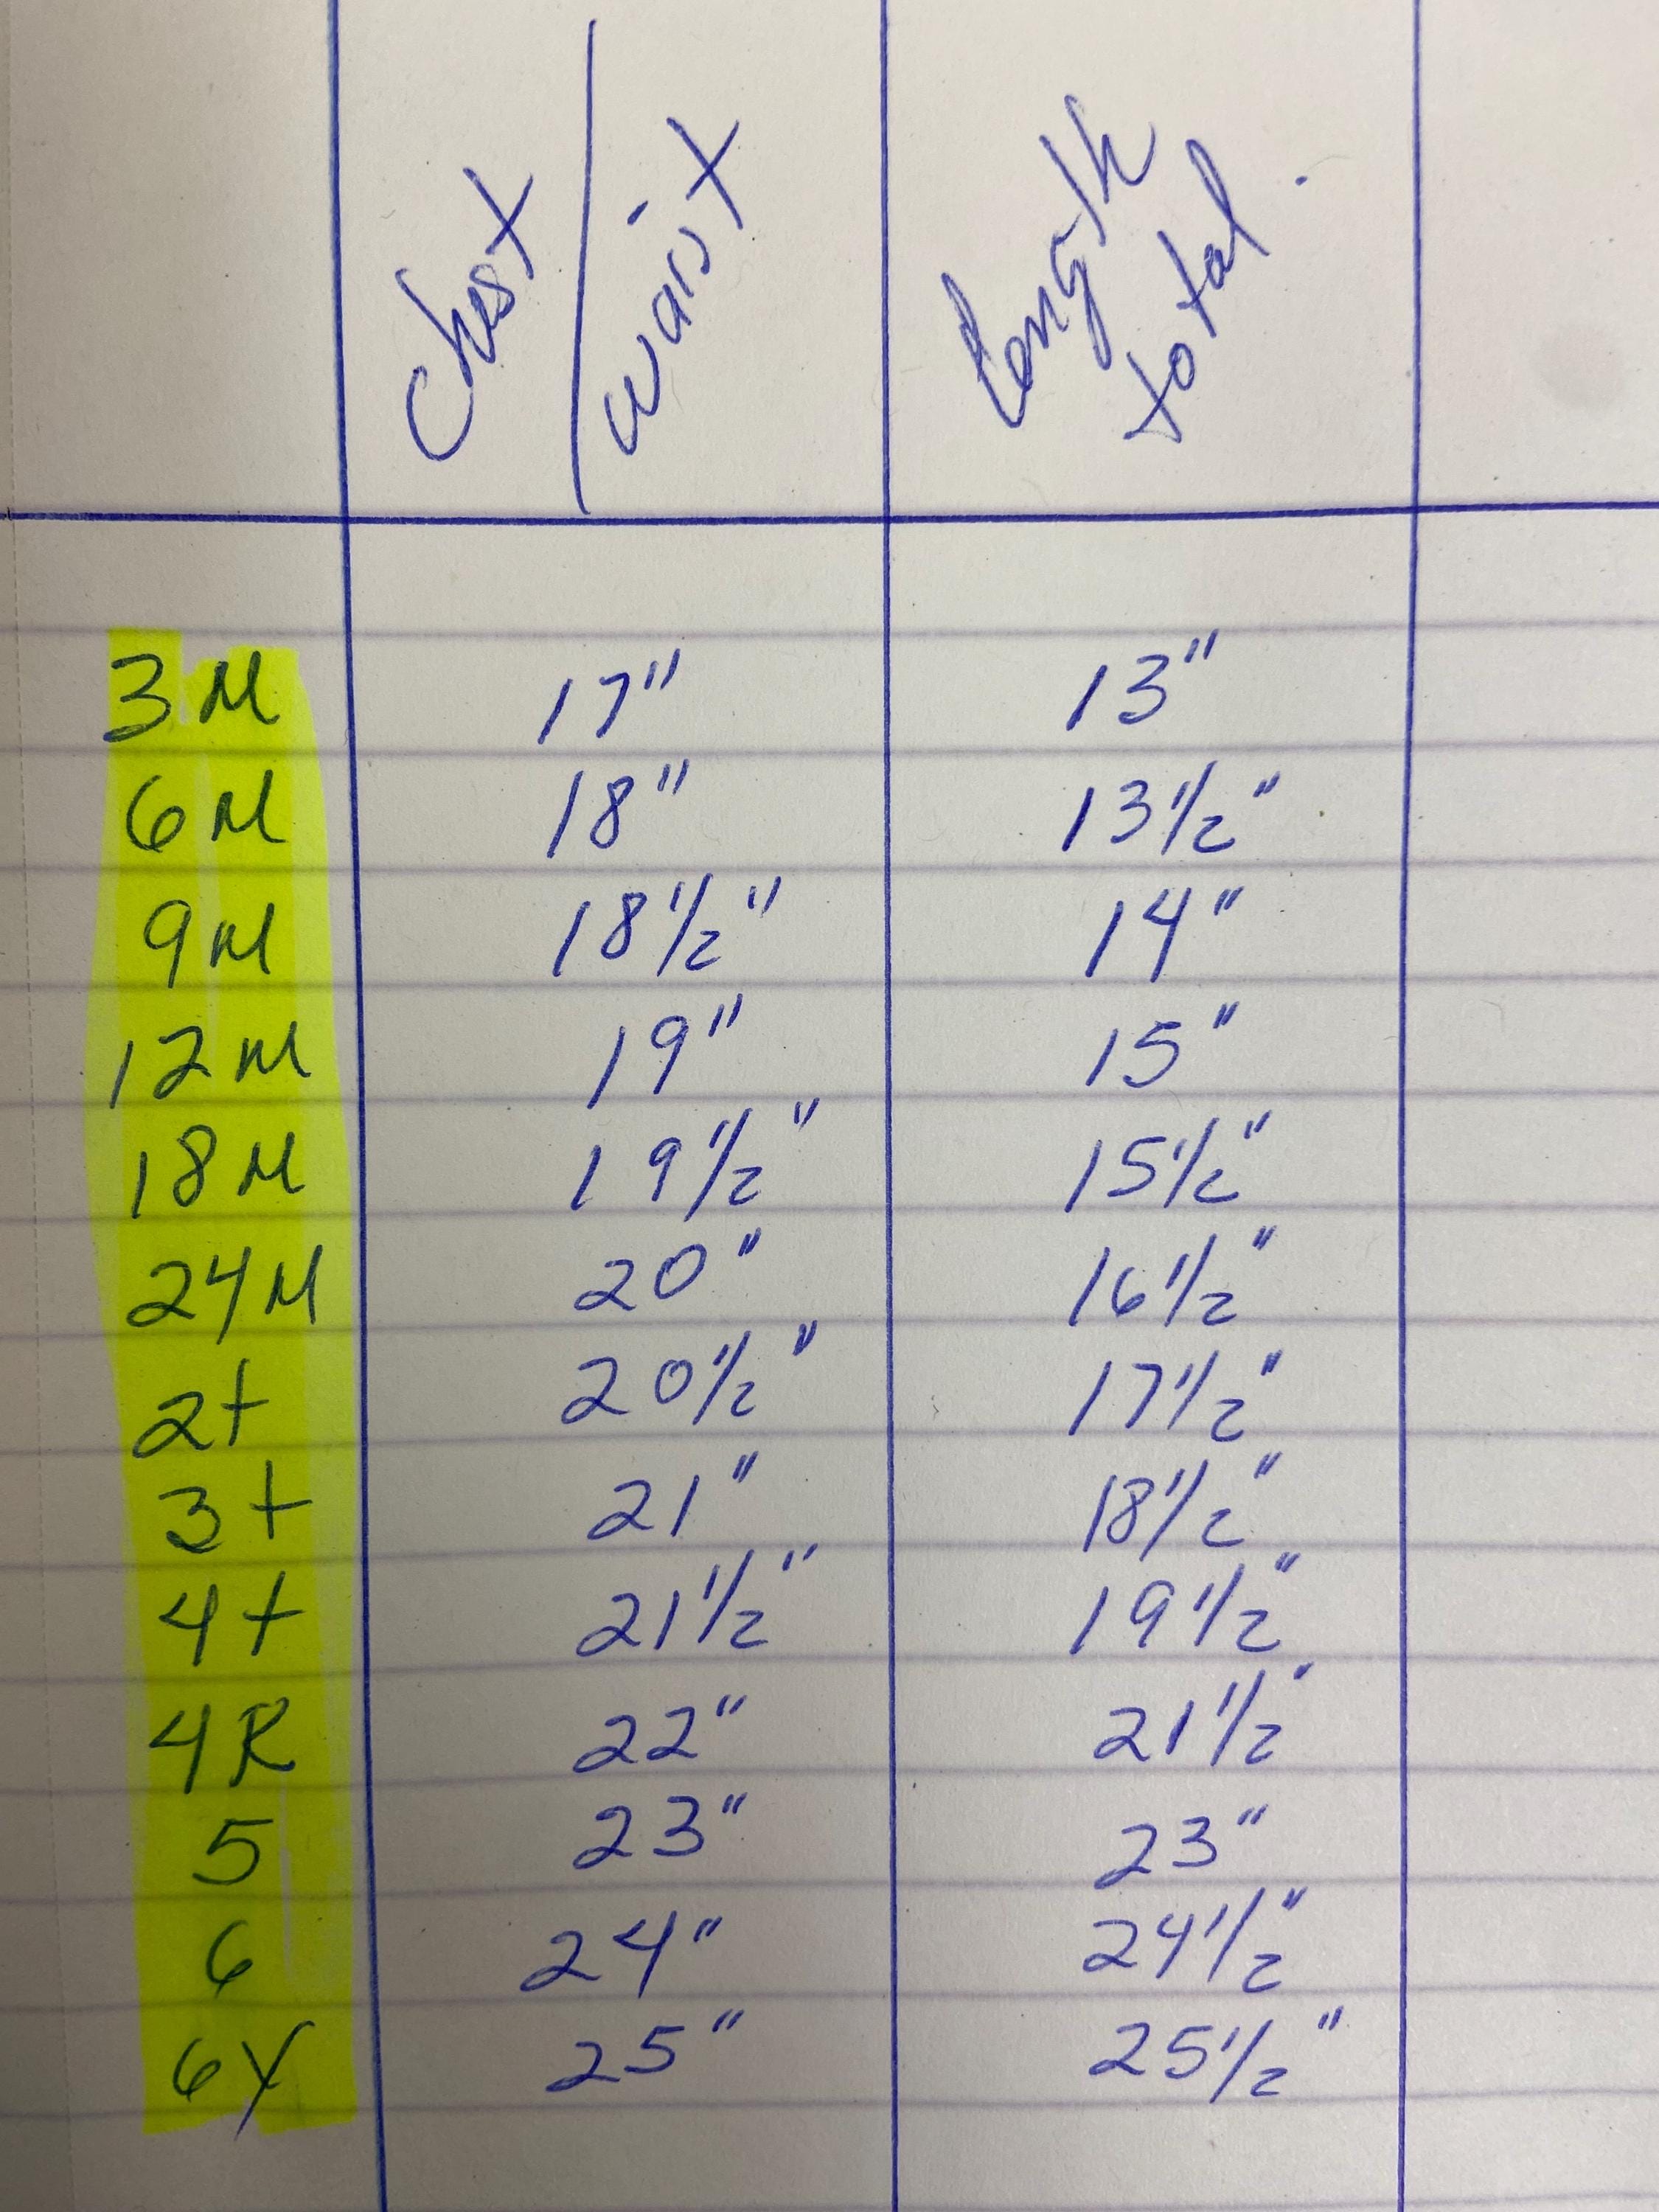 Chest / waist length total.
3M 17" 13"
6M 18" 13 1/2"
9M 18 1/2" 14"
12M 19" 15"
18M 19 1/2" 15 1/2"
24M 20" 16 1/2"
2t 20 1/2" 17 1/2"
3t 21" 18 1/2"
4t 21 1/2" 19 1/2"
4R 22" 21 1/2"
5 23" 23"
6 24" 24 1/2"
6X 25" 25 1/2"